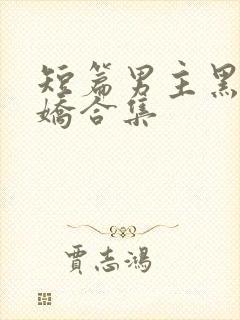 短篇男主黑
嬌合集
賈志鴻